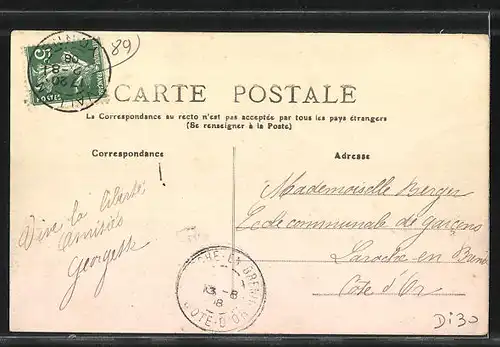 89
CARTE POSTALE
La Correspondance au recto n'est pas acceptée par tous les pays étrangers
(Se renseigner à la Poste)
Correspondance
Adresse
!
Vive la liberté
Amitiés
Georgette
Mademoiselle Berger
Ecole communale de garçons
Laroche en Brenil
Côte d'Or
CHE-EN-BRENIL
13 -8
8
COTE-D'OR
Di30